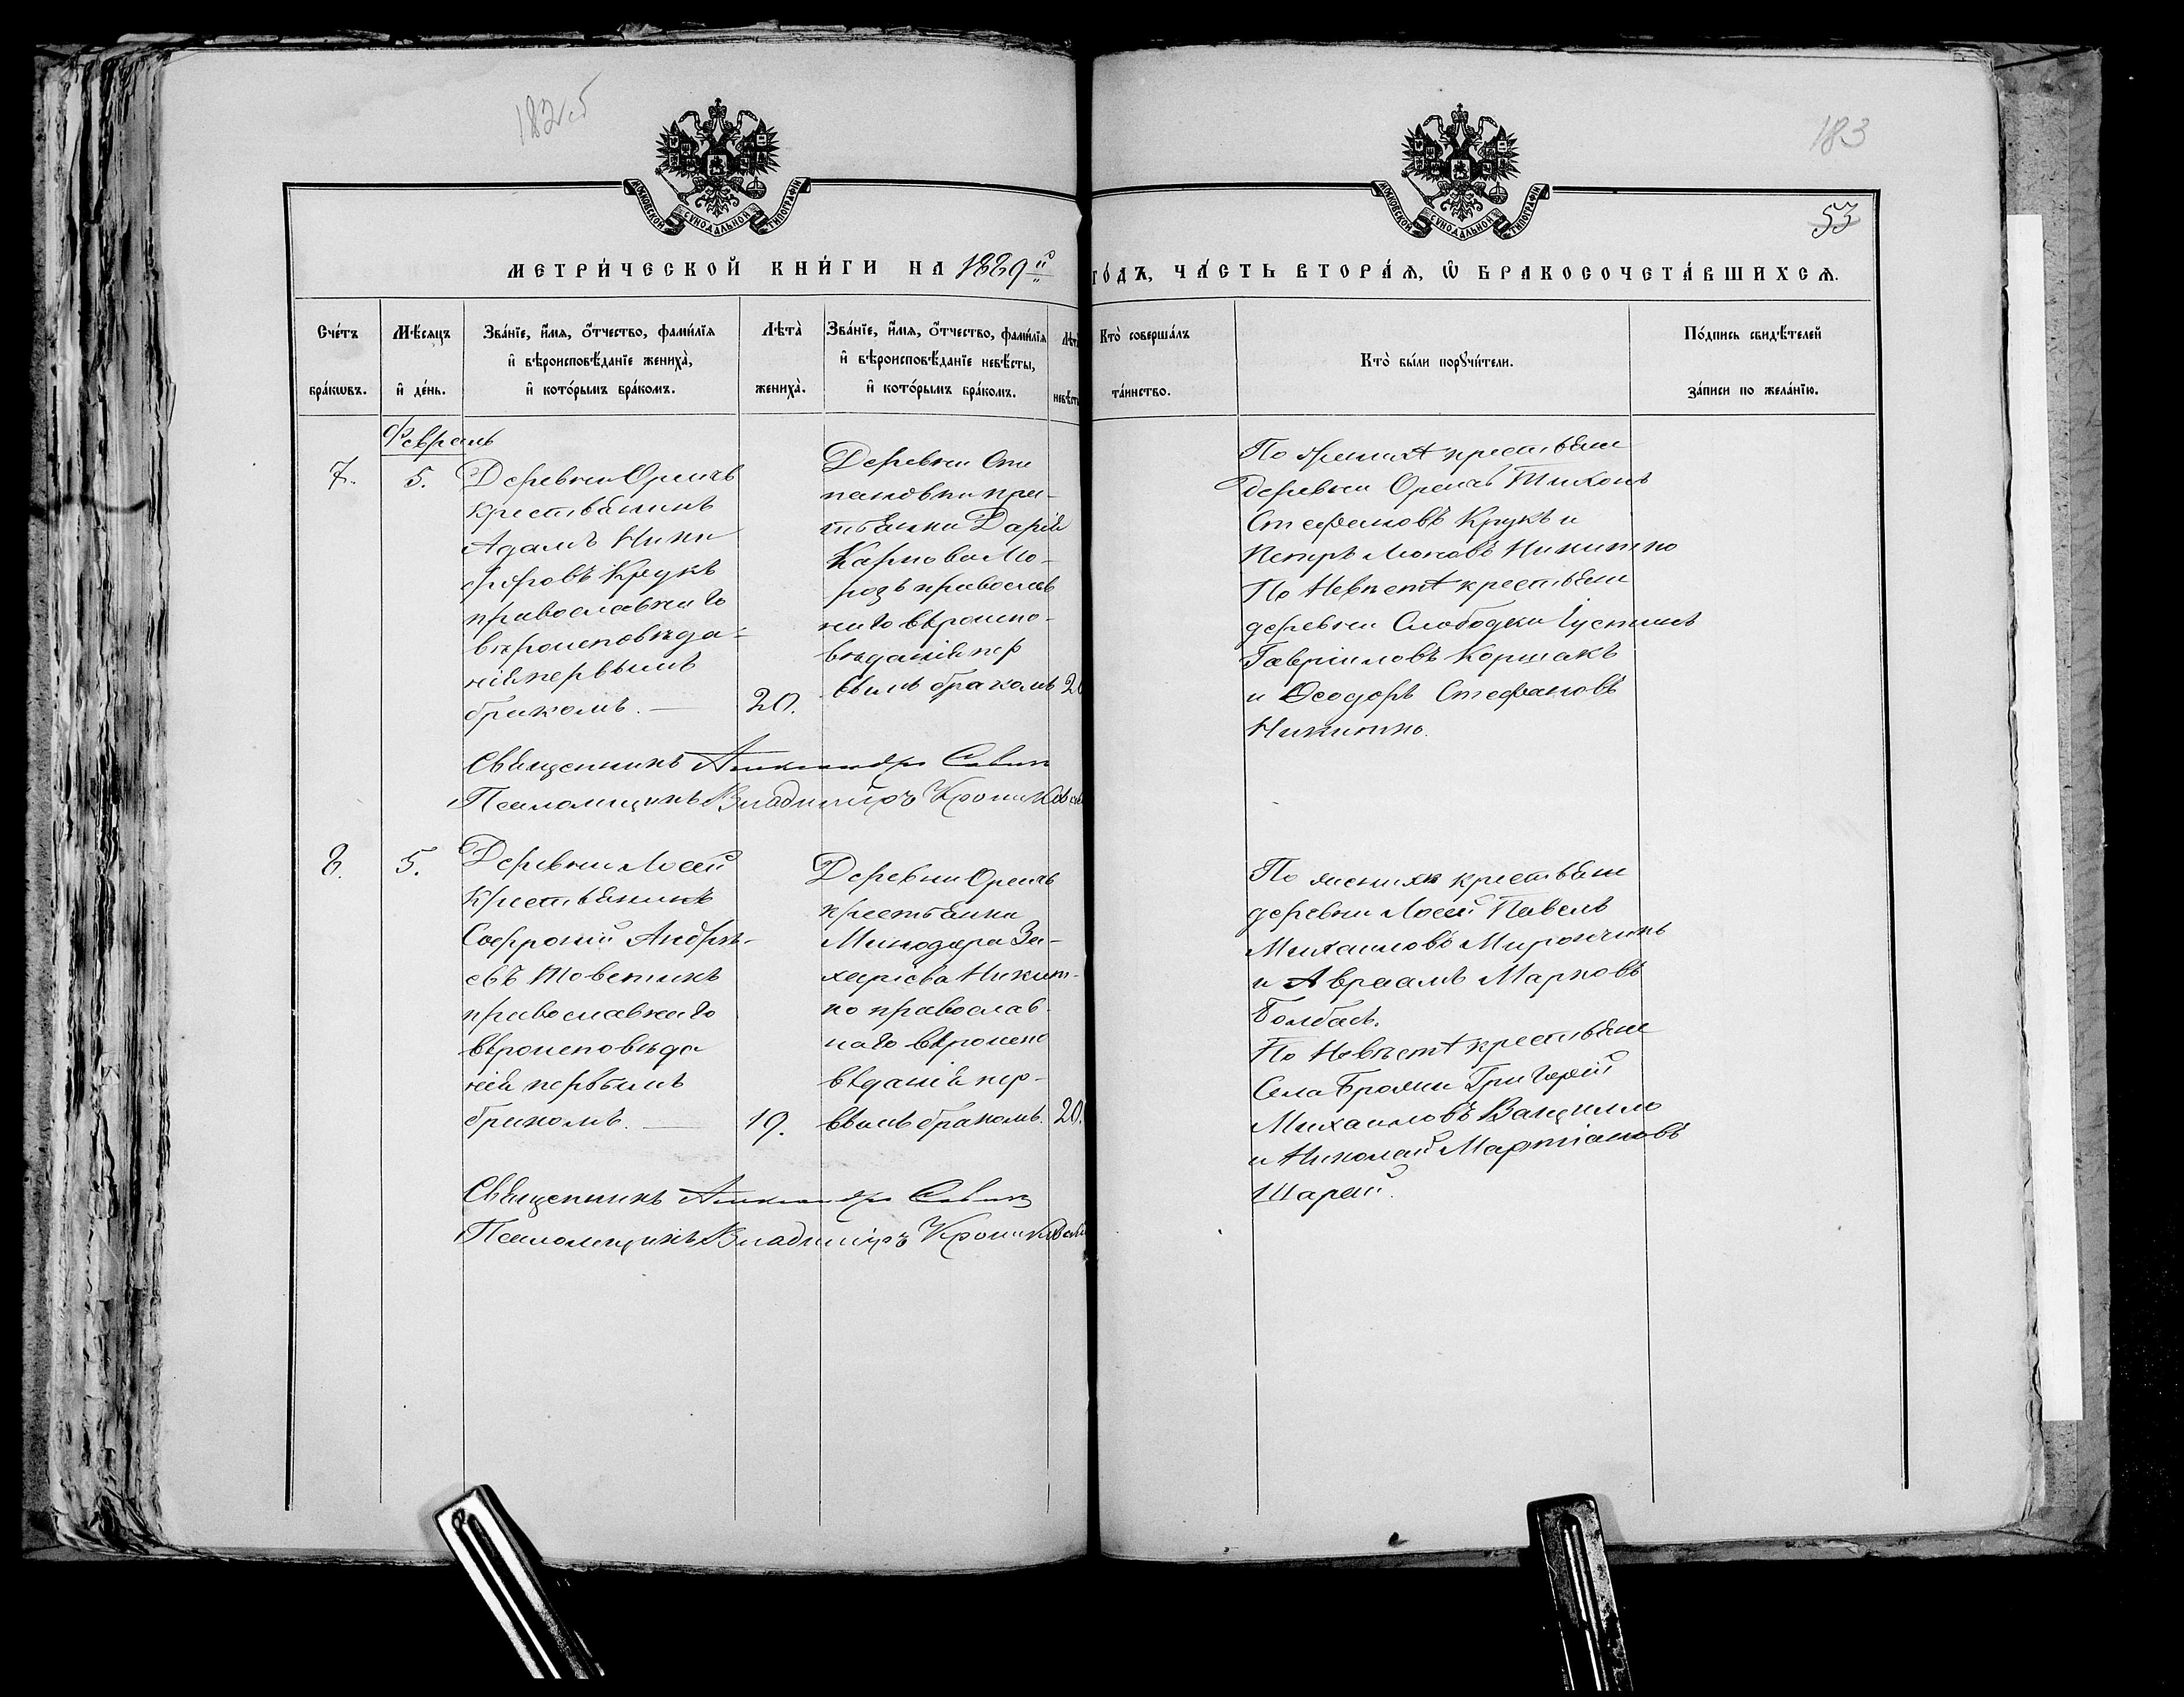 182об
183
МОСКОВСКОЙ СѴНОДАЛЬНОЙ ТИПОГРАФІИ
МОСКОВСКОЙ СѴНОДАЛЬНОЙ ТИПОГРАФІИ
53
МЕТРИ́ЧЕСКОЙ КНИ́ГИ НА 1889й
ГО́ДЪ, ЧА́СТЬ ВТОРА́Ѧ, Ѽ БРАКОСОЧЕТА́ВШИХСѦ.
Сче́тъ бра́кѡвъ.
Мѣ́сяцъ и҆ де́нь.
Зва́нїе, и҆́мя, ѻ҆́тчество, фами́лїя
и҆ вѣроисповѣ́данїе жениха̀,
и҆ кото́рымъ бра́комъ.
Лѣта̀ жениха̀.
Зва́нїе, и҆́мя, ѻ҆́тчество, фами́лїя
и҆ вѣроисповѣ́данїе невѣ́сты,
и҆ кото́рымъ бра́комъ.
Лѣта невѣст
Кто̀ соверша́лъ та́инство.
Кто̀ бы́ли порꙋчи́тели.
По́дпись свидѣ́телей
за́писи по жела́нїю.
Февраль
7.
5.
Деревни Оречь
крестьянинъ
Адамъ Ники
форовъ Крукъ
православнаго
вѣроисповѣда-
нія первымъ
бракомъ.
20.
Деревни
крес-
тьянка Дарія
Карпова Мо-
розъ православ
наго вѣроиспо-
вѣданія пер
вымъ бракомъ
20
По женихѣ крестьяне
деревни Оречь Тихонъ
Стефановъ Крукъ и
Петръ Никитко
По Невѣстѣ крестьяне
деревни Слободки Іустинъ
Гавріиловъ Коршакъ
и Ѳеодоръ Стефановъ
Никитко.
Священникъ Александръ Савич
Псаломщикъ Владиміръ
8.
5.
Деревни Лосей
Крестьянинъ
Софроній Андрѣ-
евъ Товстикъ
православнаго
вѣроисповѣда
нія первымъ
бракомъ.
19.
Деревни Оречь
крестьянка
Минодора За-
харіева Никит-
ко православ-
наго вѣроиспо
вѣданія пер-
вымъ бракомъ.
20.
По женихѣ крестьяне
деревни Лосей Павелъ
Михаиловъ Мирончикъ
и Авраамъ Марковъ
Болбасъ.
По Невѣстѣ крестьяне
Села Григорій
Михаиловъ Ванцилло
и Николай Мартіановъ
Шарай.
Священникъ Александръ Савич
Псаломщикъ Владиміръ